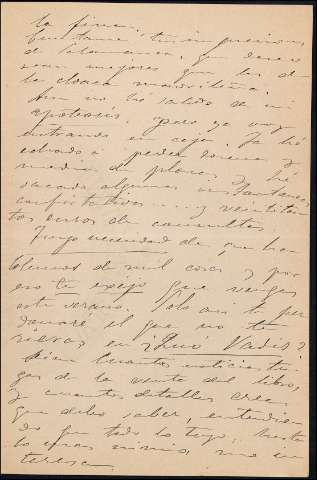 la finca.
Cuéntame tus impresiones
de Salamanca, que deseo
sean mejores que las de
la cloaca madrileña.
Aun no he salido de mi
apoteosis, pero ya voy
entrando en caja. Ya he
echado á perder docena y
media de placas y he
sacado algunas instantáneas
satisfactorias ... y veintitan
tos duros de consultas.
Tengo necesidad de que ha
blemos de mil cosas y por
eso te exijo que vengas
este verano. Solo así te per
donaré el que no te
rieras en ¿Quo Vadis?
Dian cuantas noticias ten
gas de la venta del libro,
y cuantos detalles creas
que debo saber, entendien
do que todo lo tuyo, hasta
lo más nimio, me in
teresa.